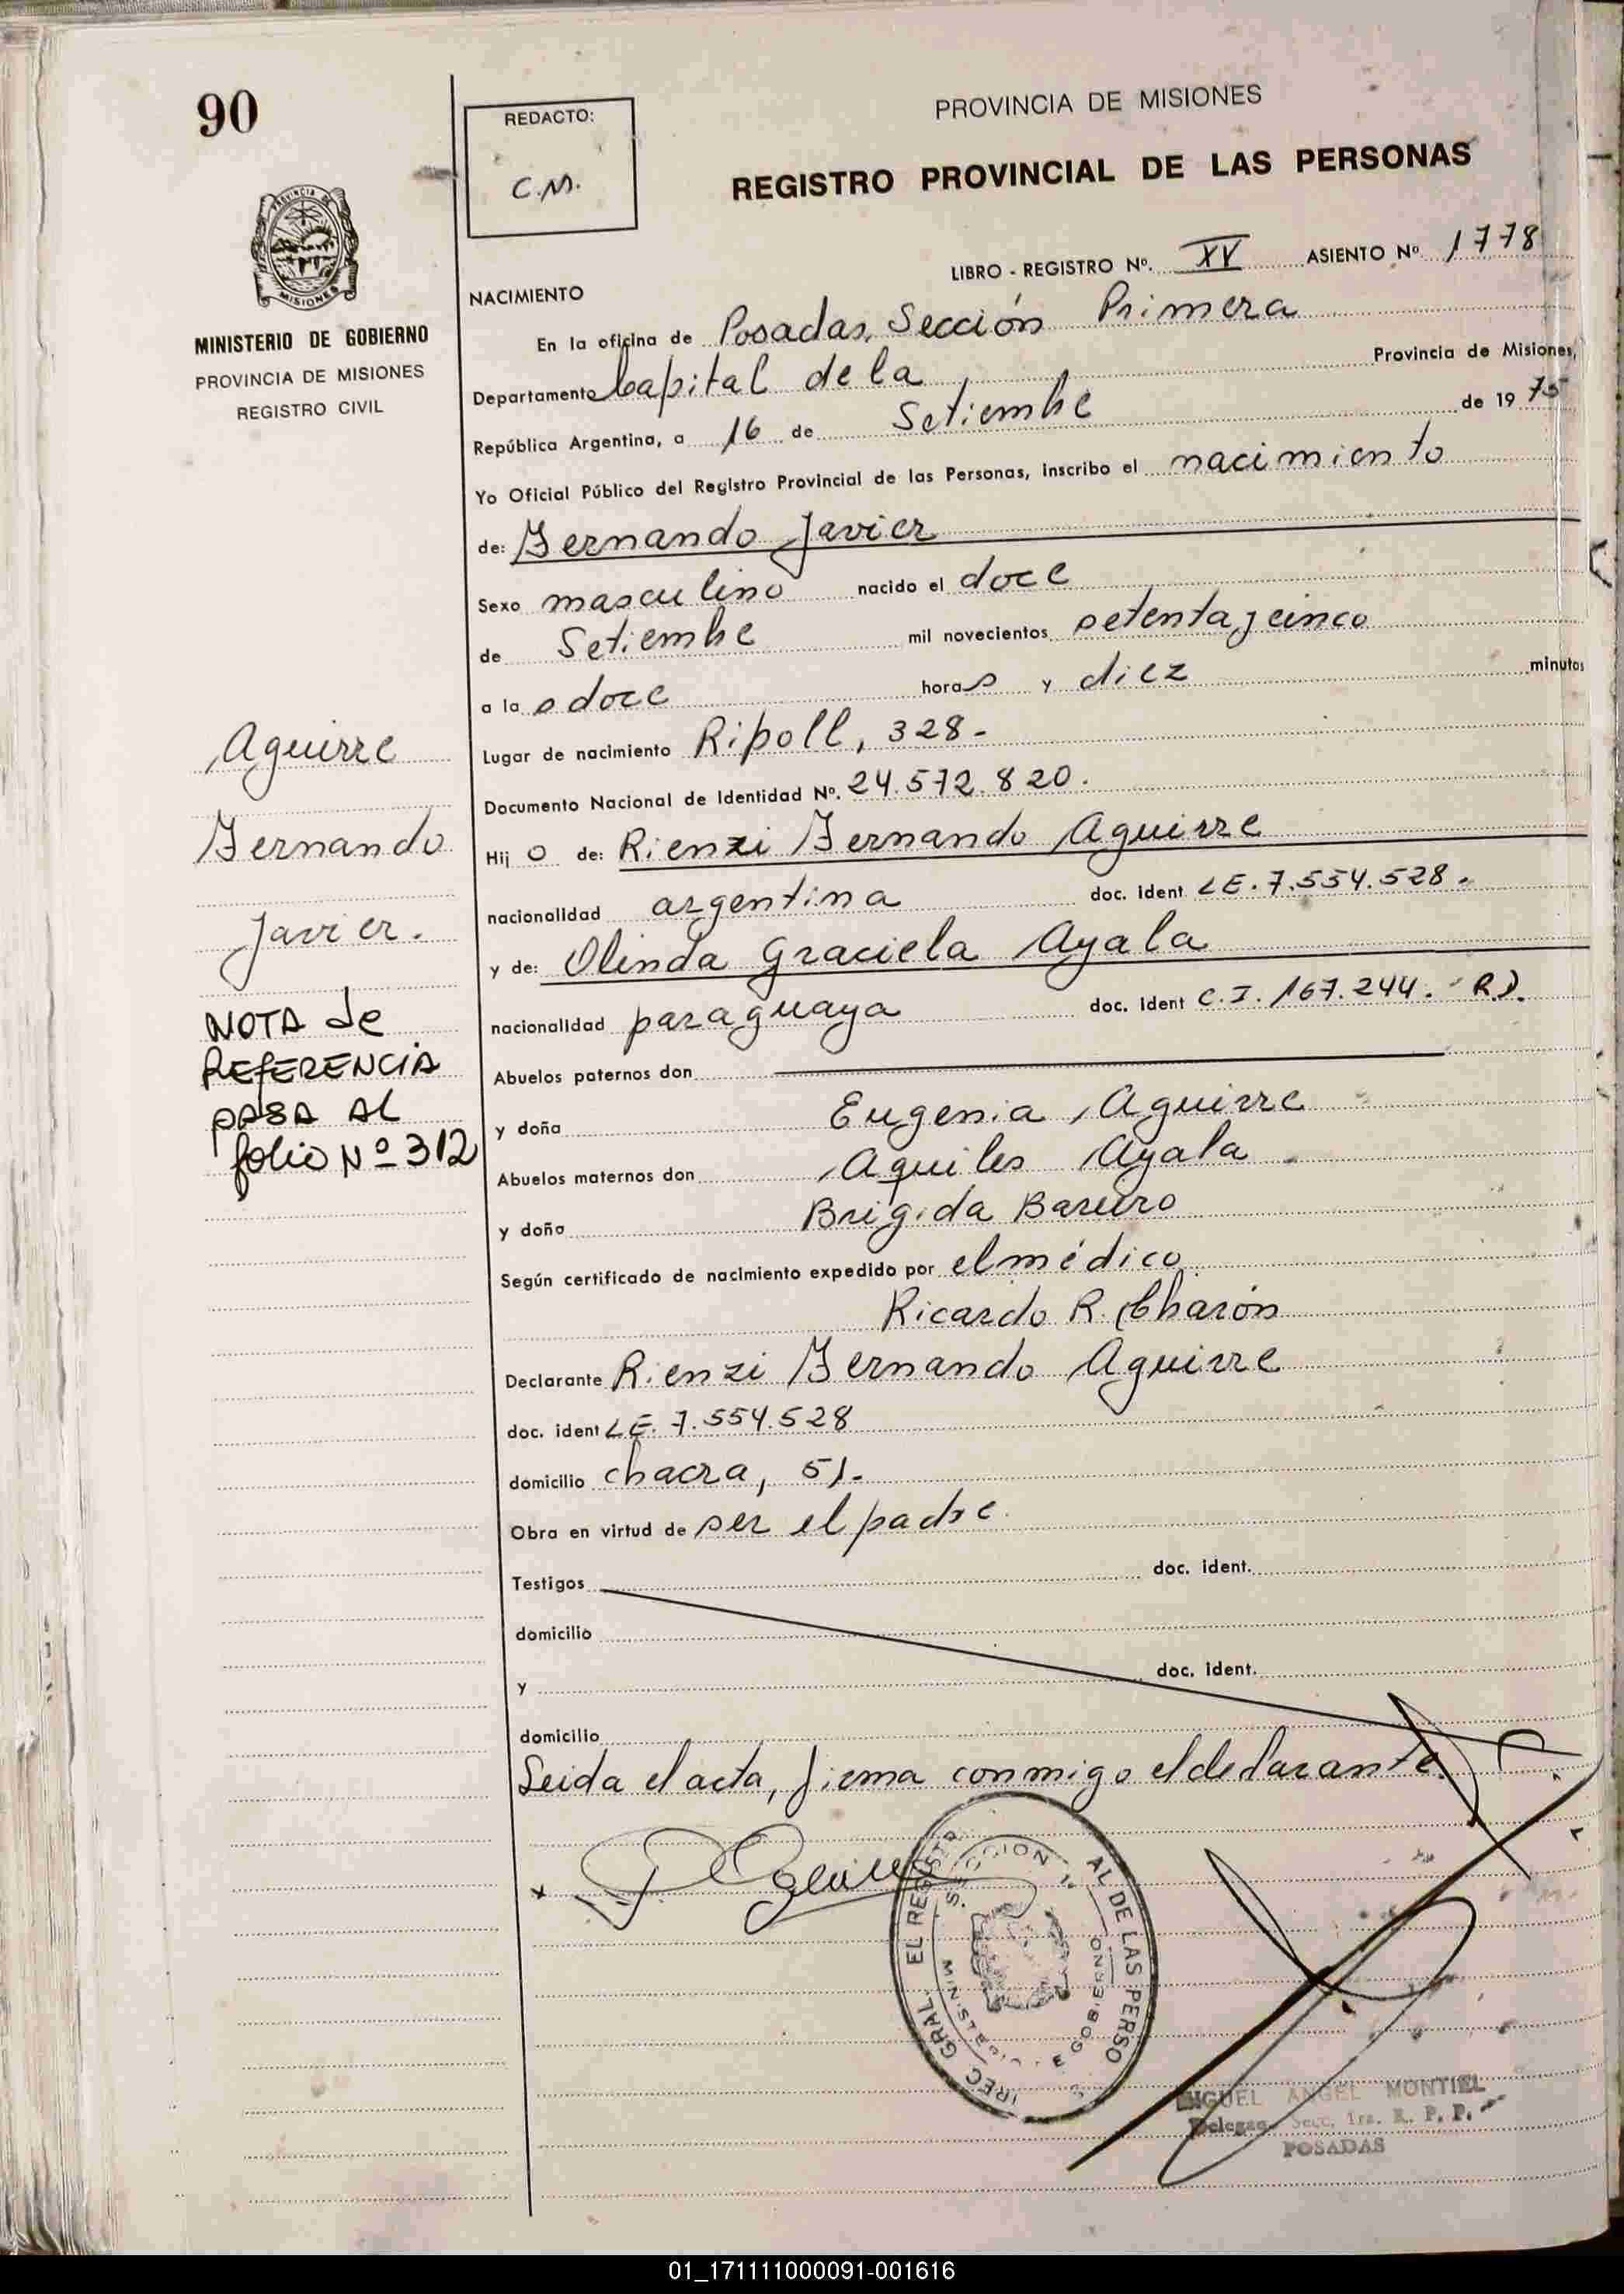 90
REDACTO:
C.M.
PROVINCIA DE MISIONES
REGISTRO PROVINCIAL DE LAS PERSONAS
LIBRO - REGISTRO Nº. XV ASIENTO Nº 1778
PROVINCIA DE
MISIONES
MINISTERIO DE GOBIERNO
PROVINCIA DE MISIONES
REGISTRO CIVIL
NACIMIENTO
En la oficina de Posadas, Sección Primera
Departamento Capital de la Provincia de Misiones,
República Argentina, a 16 de Setiembre de 19 75
Yo Oficial Público del Registro Provincial de las Personas, inscribo el nacimiento
de: Fernando Javier
Sexo masculino nacido el doce
de Setiembre mil novecientos setenta y cinco
a la s doce horas y diez minutos
Lugar de nacimiento Ripoll, 328.-
Documento Nacional de Identidad Nº. 24.572.820.
Hij o de: Rienzi Fernando Aguirre
nacionalidad argentina doc. ident LE. 7.554.528.
y de: Olinda Graciela Ayala
nacionalidad paraguaya doc. ident C.I. 167.244. R.P.
Abuelos paternos don
y doña Eugenia Aguirre
Abuelos maternos don Aquiles Ayala
y doña Brigida Bareiro
Según certificado de nacimiento expedido por el médico
Ricardo R. Charón
Declarante Rienzi Fernando Aguirre
doc. ident LE. 7.554.528
domicilio chacra, 51.-
Obra en virtud de ser el padre.
Testigos doc. ident.
domicilio
y doc. ident.
domicilio
Leida el acta, firma conmigo el declarante.
Aguirre
Fernando
Javier.
NOTA de
REFERENCIA
PASA AL
folio Nº 312
SECCION 1ª
MINISTERIO DE GOBIERNO
MIGUEL ANGEL MONTIEL
Delegado Secc. 1ra. R. P. P.
POSADAS
01_171111000091-001616